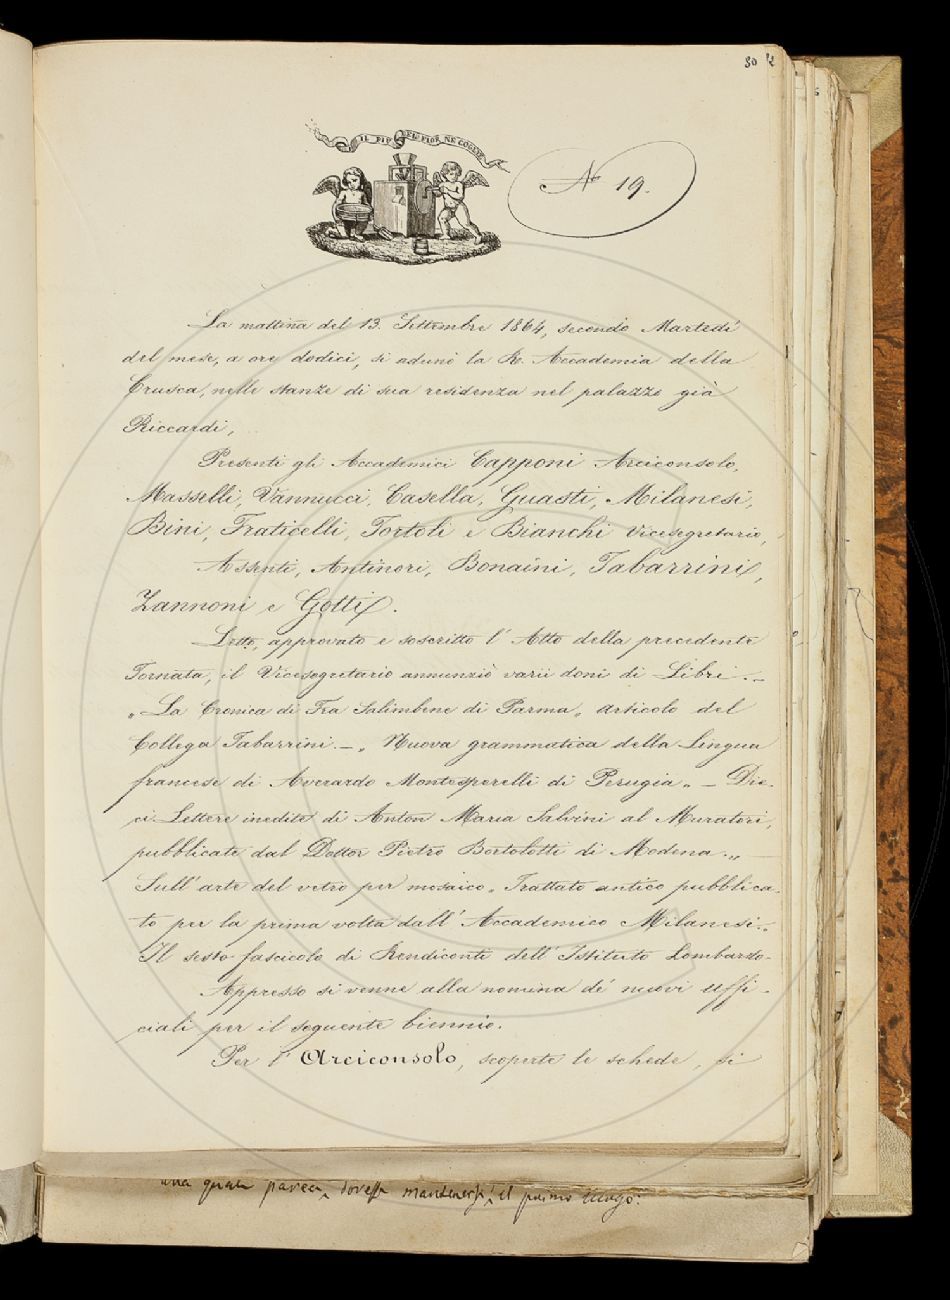 80
IL PIÙ BEL FIOR NE COGLIE
No 19.
La mattina del 13. Settembre 1864, secondo Martedì
del mese, a ore dodici, si adunò la R. Accademia della
Crusca, nelle stanze di sua residenza nel palazzo già
Riccardi,
Presenti gli Accademici Capponi Arciconsolo,
Masselli, Vannucci, Casella, Guasti, Milanesi,
Bini, Fraticelli, Tortoli e Bianchi Vicesegretario,
Assenti, Antinori, Bonaini, Tabarrini,
Zannoni e Gotti.
Letto, approvato e soscritto l' Atto della precedente
Tornata, il Vicesegretario annunziò varii doni di Libri. —
„ La Cronica di Fra Salimbene di Parma „ articolo del
Collega Tabarrini. — „ Nuova grammatica della Lingua
francese di Averardo Montesperelli di Perugia „ — Die-
ci Lettere inedite di Anton Maria Salvini al Muratori,
pubblicate dal Dottor Pietro Bortolotti di Modena. „ —
Sull' arte del vetro per mosaico „ Trattato antico pubblica-
to per la prima volta dall' Accademico Milanesi. „
Il sesto fascicolo di Rendiconti dell' Istituto Lombardo.
Appresso si venne alla nomina de' nuovi uffi-
ciali per il seguente biennio.
Per l' Arciconsolo, scoperte le schede, si
una parea, dovesse mantenersi il primo luogo.